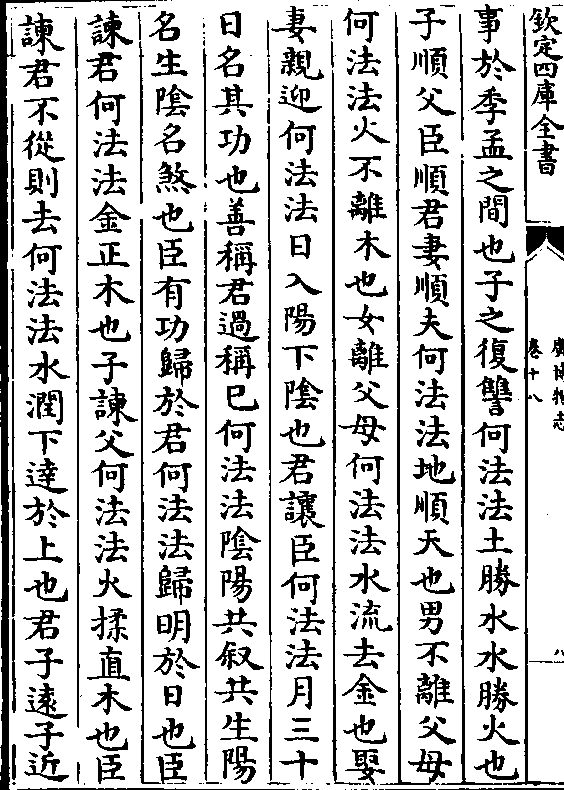 欽定四庫全書
廣博物志
卷十八
八
事於季孟之間也子之復讐何法法土勝水水勝火也
子順父臣順君妻順夫何法法地順天也男不離父母
何法法火不離木也女離父母何法法水流去金也娶
妻親迎何法法日入陽下陰也君讓臣何法法月三十
日名其功也善稱君過稱已何法法陰陽共叙共生陽
名生陰名煞也臣有功歸於君何法法歸明於日也臣
諫君何法法金正木也子諫父何法法火揉直木也臣
諫君不從則去何法法水潤下達於上也君子遠子近